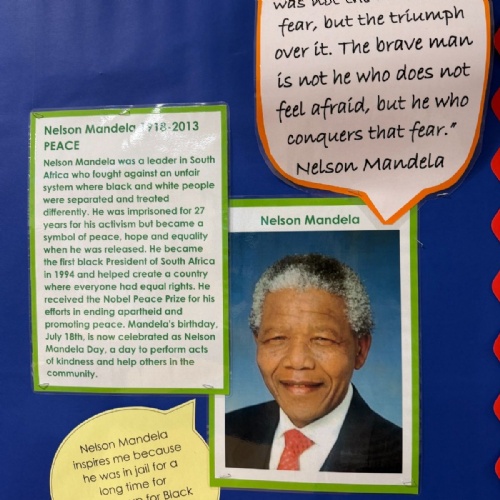 was not the
fear, but the triumph
over it. The brave man
is not he who does not
feel afraid, but he who
conquers that fear."
Nelson Mandela
Nelson Mandela 1918-2013
PEACE
Nelson Mandela was a leader in South
Africa who fought against an unfair
system where black and white people
were separated and treated
differently. He was imprisoned for 27
years for his activism but became a
symbol of peace, hope and equality
when he was released. He became
the first black President of South Africa
in 1994 and helped create a country
where everyone had equal rights. He
received the Nobel Peace Prize for his
efforts in ending apartheid and
promoting peace. Mandela's birthday,
July 18th, is now celebrated as Nelson
Mandela Day, a day to perform acts
of kindness and help others in the
community.
Nelson Mandela
Nelson Mandela
inspires me because
he was in jail for a
long time for
for Black